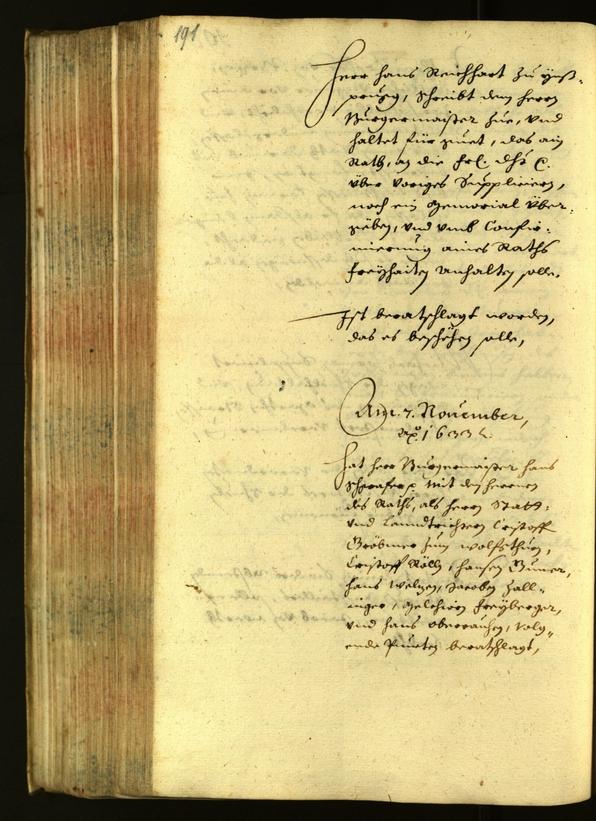 191
Herr Hans Reichhart zu Ynß-
prugg, schreibt dem herrn
Burgermaister hie, vnd
haltet für guet, das ain
Rath, an die frl. dht. C.
über voriges Supplicirn,
noch ein Memorial über-
geben, vnd vmb Confir-
mierung aines Raths
freyhaiten anhalten solle.
Ist beratschlagt worden,
das es beschehen solle,
Am 7. November,
aõ. 1633.
Hat herr Burgermaister Hans
mit den herren
des Raths, als herrn Statt-
vnd Lanndtrichtern Cristoff
Gröbmer zum Wolfsthurn,
Cristoff Röll, Hansen
Hans Welzen, Jacoben Zall-
inger, Melchiorn Freyberger,
vnd Hans Oberrauch, volg-
ende Puncten beratschlagt,